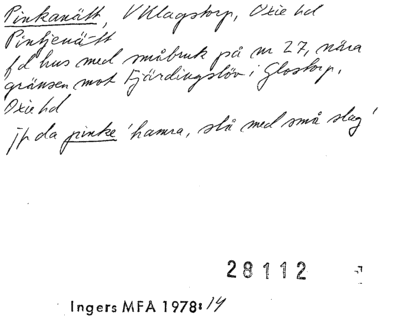 Pinkanätt, V Klagstorp, Oxie hd
Pintjenätt
f d hus med småbruk på nr 27, nära
gränsen mot Fjärdingslöv i Glostorp,
Oxie hd
Jfr da pinke 'hamra, slå med små slag'
28112
Ingers MFA 1978:14